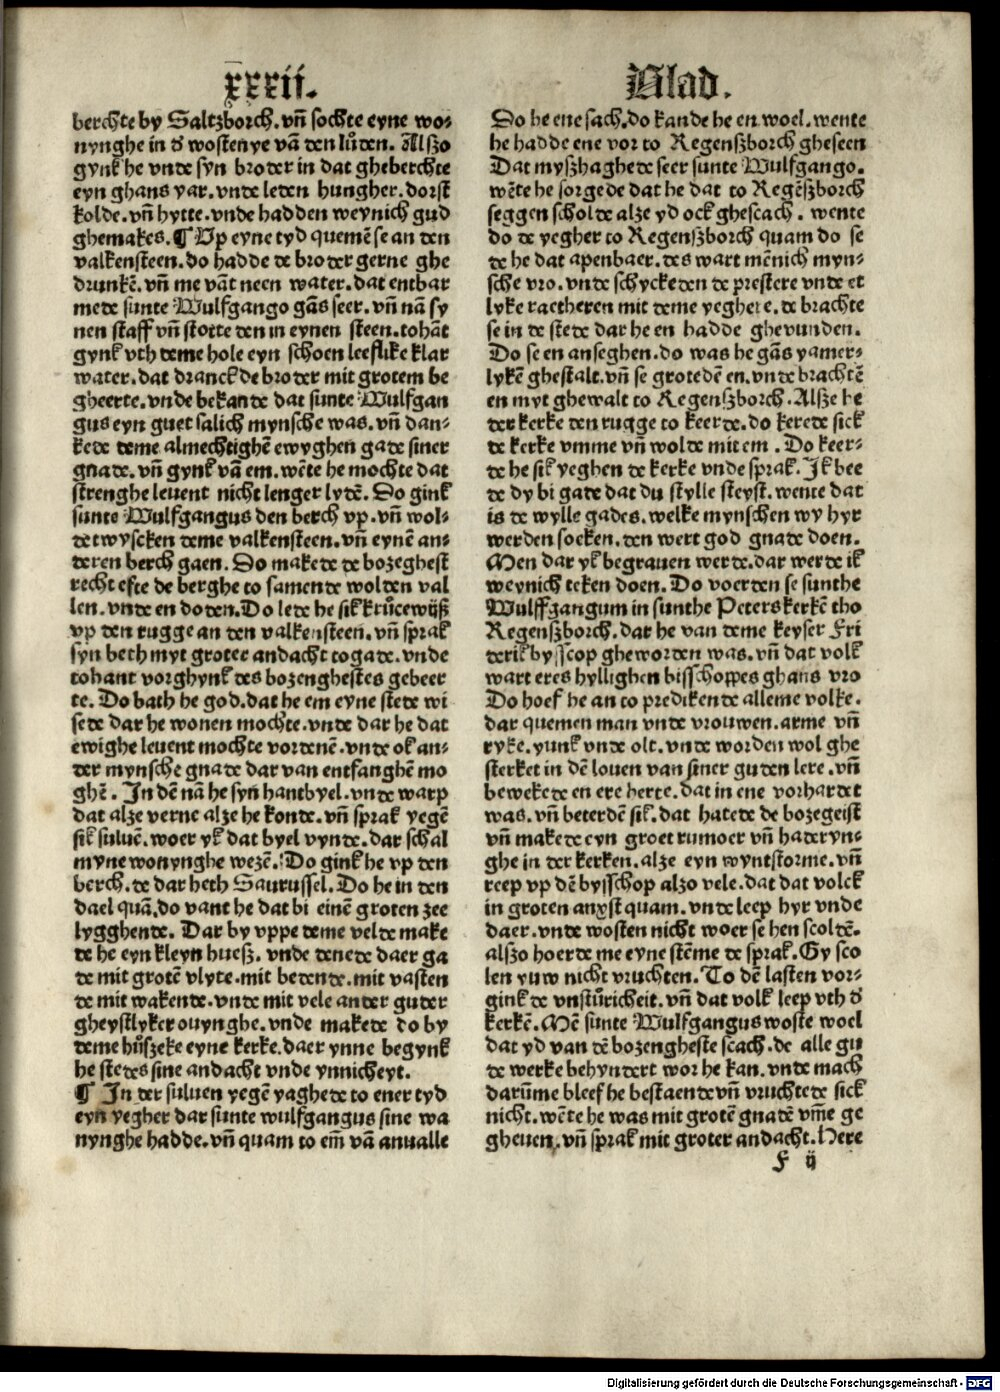 xxxii.
berchte by Saltzborch. vn̄ sochte eyne wo-
nynghe in d' wostenye vā den lůden. Alszo
gynk he vnde syn broder in dat gheberchte
eyn ghans yar. vnde leden hungher. dorst
kolde. vn̄ hytte. vnde hadden weynich gud
ghemakes. ¶ Up eyne tyd quemē se an den
valkensteen. do hadde de broder gerne ghe
drunkē. vn̄ me vāt neen water. dat entbar
mede sunte Wulfgango gās seer. vn̄ nā sy
nen staff vn̄ stotte den in eynen steen. tohāt
gynk vth deme hole eyn schoen leeflike klar
water. dat dranck de broder mit grotem be
gheerte. vnde bekande dat sunte Wulfgan
gus eyn guet salich mynsche was. vn̄ dan-
kede deme almechtighē ewyghen gade siner
gnade. vn̄ gynk vā em. wēte he mochte dat
strenghe leuent nicht lenger lydē. Do gink
sunte Wulfgangus den berch vp. vn̄ wol-
de twyscken deme valkensteen. vn̄ eynē an-
deren berch gaen. Do makede de bozeghest
recht efte de berghe to samende wolden val
len. vnde en doden. Do lede he sik krůcewijß
vp den rugge an den valkensteen. vn̄ sprak
syn beth myt groter andacht to gade. vnde
tohant vorghynk des bozenghestes gebeer
te. Do bath he god. dat he em eyne stede wi
sede dar he wonen mochte. vnde dar he dat
ewighe leuent mochte vordenē. vnde ok an-
der mynsche gnade dar van entfanghē mo
ghē. In dē nā he syn̄ hantbyel. vnde warp
dat alze verne alze he konde. vn̄ sprak yegē
sik suluē. woer yk dat byel vynde. dar schal
myne wonynghe wezē. Do gink he vp den
berch. de dar heth Saurussel. Do he in den
dael quā. do vant he dat bi einē groten zee
lygghende. Dar by vppe deme velde make
de he eyn kleyn huesz. vnde denede daer ga
de mit grotē vlyte. mit bedende. mit vasten
de mit wakende. vnde mit vele ander guder
gheystlyker ouynghe. vnde makede do by
deme hůszeke eyne kerke. daer ynne begynk
he stedes sine andacht vnde ynnicheyt.
¶ In der suluen yegē yaghede to ener tyd
eyn yegher dar sunte wulfgangus sine wa
nynghe hadde. vn̄ quam to em̄ vā anualle
Blad.
Do he ene sach. do kande he en woel. wente
he hadde ene vor to Regenszborch gheseen
Dat myszhaghede seer sunte Wulfgango.
wēte he sorgede dat he dat to Regēszborch
seggen scholde alze yd ock ghescach. wente
do de yegher to Regenszborch quam do se
de he dat apenbaer. des wart mēnich myn-
sche vro. vnde schyckeden de prestere vnde et
lyke raetheren mit deme yeghere. de brachte
se in de stede dar he en hadde gheuunden.
Do se en anseghen. do was he gās yamer-
lykē ghestalt. vn̄ se grotedē en. vnde brachtē
en myt ghewalt to Regenszborch. Alsze he
der kerke den rugge to keerde. do kerede sick
de kerke vmme vn̄ wolde mit em. Do keer-
de he sik yeghen de kerke vnde sprak. Jk bee
de dy bi gade dat du stylle steyst. wente dat
is de wylle gades. welke mynschen wy hyr
werden soeken. den wert god gnade doen.
Men dar yk begrauen werde. dar werde ik
weynich teken doen. Do voerden se sunthe
Wulffgangum in sunthe Peters kerkē tho
Regenszborch. dar he van deme keyser Fri
derik bysscop gheworden was. vn̄ dat volk
wart eres hyllighen bisschoppes ghans vro
Do hoef he an to predikende alleme volke.
dar quemen man vnde vrouwen. arme vn̄
ryke. yunk vnde olt. vnde worden wol ghe
sterket in dē louen van siner guden lere. vn̄
bewekede en ere herte. dat in ene vorhardet
was. vn̄ beterdē sik. dat hatede de bozegeist
vn̄ makede eyn groet rumoer vn̄ haderyn-
ghe in der kerken. alze eyn wyntstorme. vn̄
reep vp dē bysschop alzo vele. dat dat volck
in groten anxst quam. vnde leep hyr vnde
daer. vnde wosten nicht woer se hen scoldē.
alszo hoerde me eyne stēme de sprak. Gy sco
len yuw nicht vruchten. To dē lasten vor-
gink de vnstůricheit. vn̄ dat volk leep vth d'
kerkē. Mē sunte Wulfgangus woste woel
dat yd van dē bozengheste scach. de alle gu
de werke behyndert wor he kan. vnde mach
darūme bleef he bestaende vn̄ vruchtede sick
nicht. wēte he was mit grotē gnadē vm̄e ge
gheuen. vn̄ sprak mit groter andacht. Here
F ij
Digitalisierung gefördert durch die Deutsche Forschungsgemeinschaft - DFG